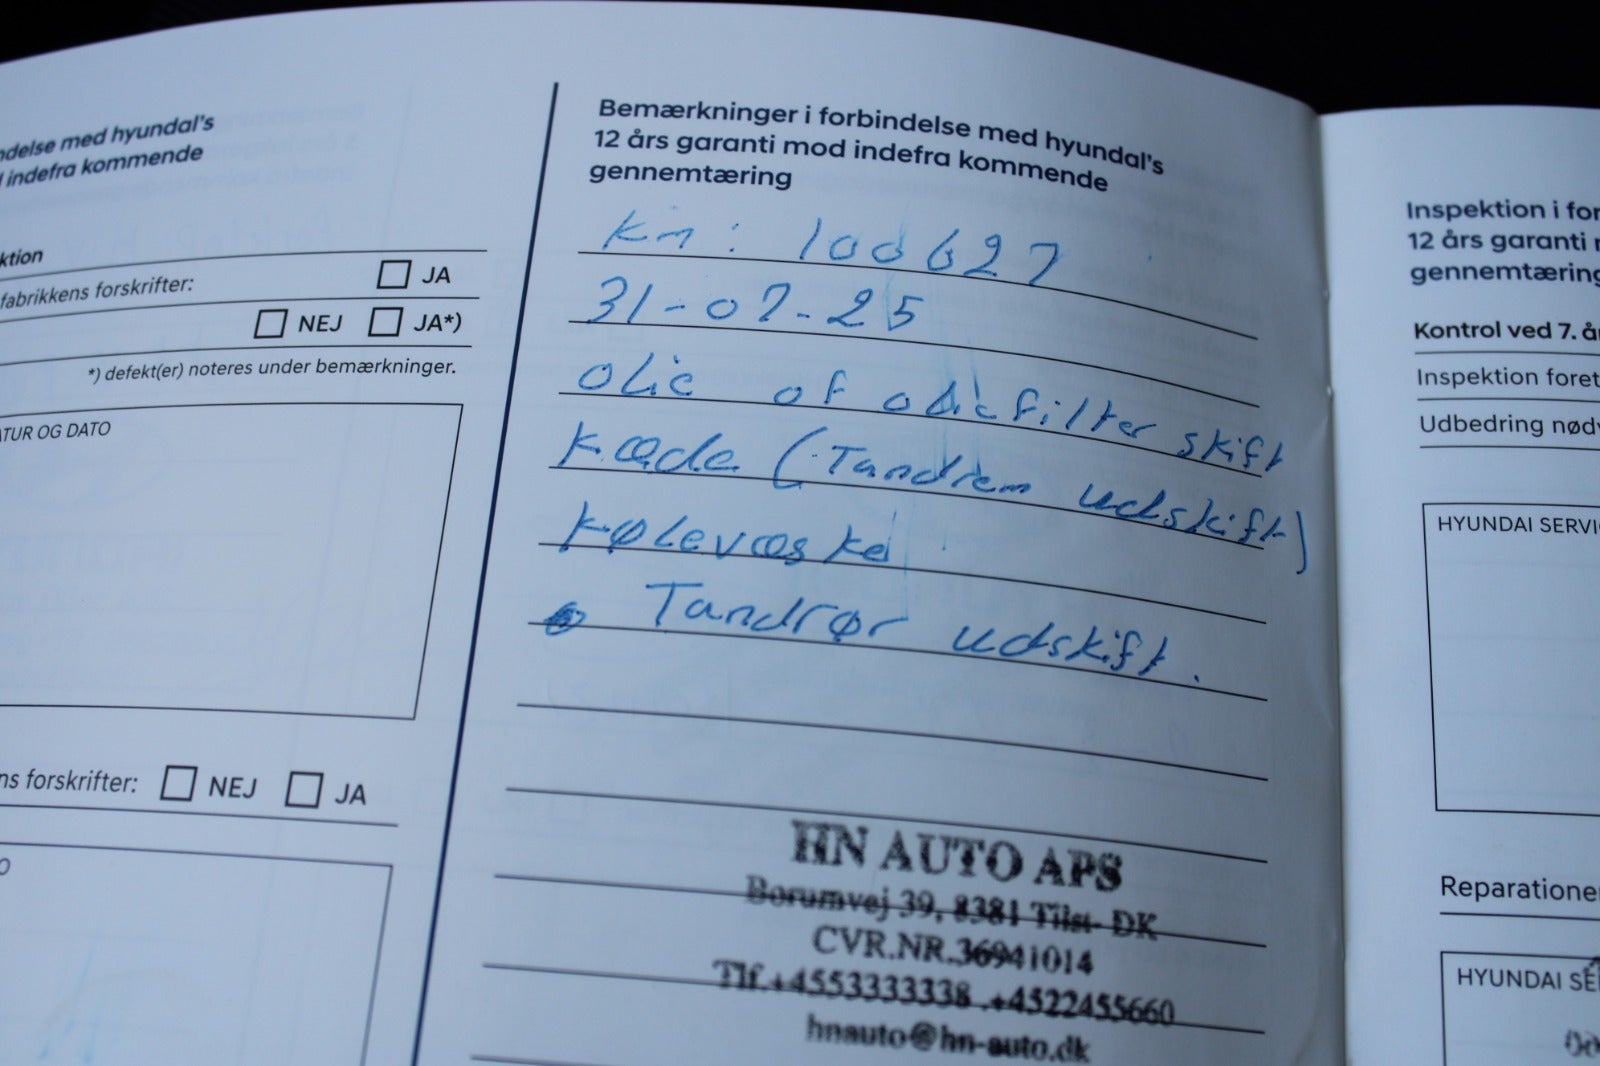 ndelse med hyundal's
indefra kommende
ktion
fabrikkens forskrifter: JA
NEJ JA*)
*) defekt(er) noteres under bemærkninger.
TUR OG DATO
ns forskrifter: NEJ JA
O
Bemærkninger i forbindelse med hyundal's
12 års garanti mod indefra kommende
gennemtæring
Km: 100627
31-07-25
olie of oliefilter skift
Kæde (Tandrem udskift)
Kølevæske
Tandrør udskift.
HN AUTO APS
Borumvej 39, 8381 Tilst- DK
CVR.NR.36941014
Tlf.+4553333338 .+4522455660
hnauto@hn-auto.dk
Inspektion i for
12 års garanti
gennemtæring
Kontrol ved 7. å
Inspektion foret
Udbedring nødv
HYUNDAI SERVI
Reparatione
HYUNDAI SE